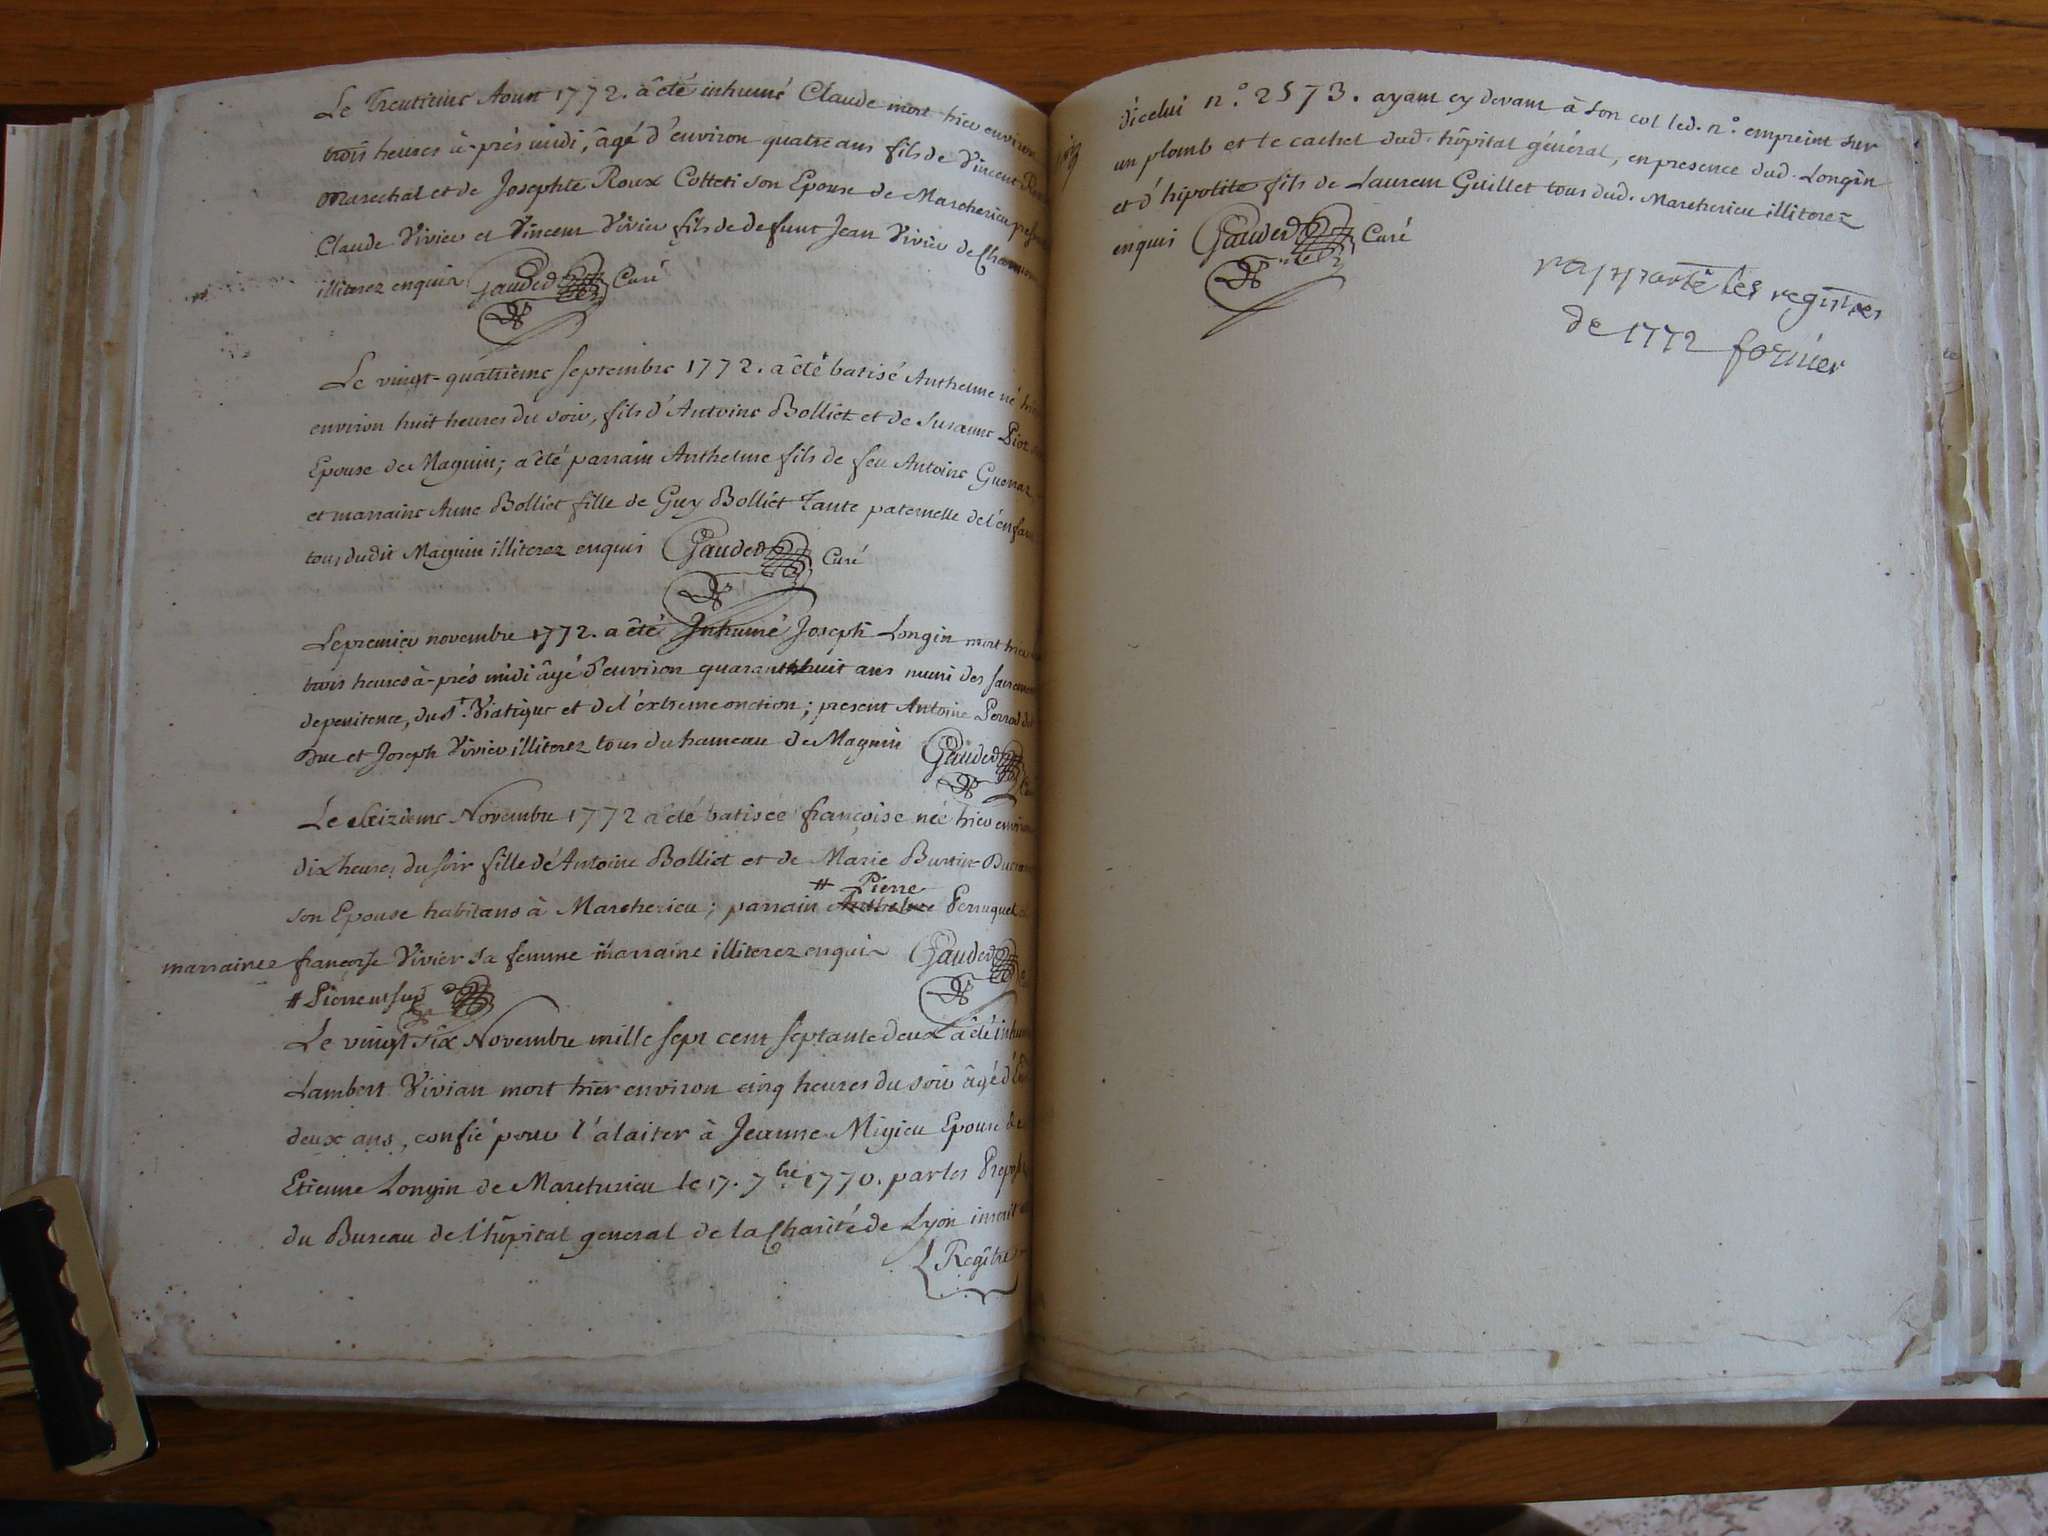 Le Trentieme Aoust 1772. a été inhumé Claude mort hier environ
trois heures à-prés midi, âgé d'environ quatre ans fils de Vincent
Marechal et de Josephte Roux Colleti son Epouse de Marcherieu
Claude Vivier et Vincent Vivier fils de defunt Jean Vivier de
illiterez enquis Gauded Curé
Le vingt-quatrieme septembre 1772. a été batisé Anthelme né hier
environ huit heures du soir, fils d'Antoine Bolliet et de Susanne
Epouse de Magnin; a été parrain Anthelme fils de feu Antoine
et marraine Anne Bolliet fille de Guy Bolliet Tante paternelle de l'enfant
tous dudit Magnin illiterez enquis Gauded Curé
Le premier novembre 1772. a été Inhumé Joseph Longin mort hier
trois heures à-prés midi âgé d'environ quarante huit ans muni des sacremens
de penitence, du St. Viatique et de l'éxtreme onction; present Antoine
Duc et Joseph Vivier illiterez tous du hameau de Magnin Gauded
Le seizieme Novembre 1772 a été batisée françoise née hier environ
dix heures du soir fille de Antoine Bolliet et de Marie Burtin
# Pierre
son Epouse habitans à Marcherieu; parrain Anthelme Perruquet
marraine françoise Vivier sa femme marraine illiterez enquis Gauded
# Pierre ut sup
Le vingt six Novembre mille sept cent septante deux a été inhumé
Lambert Vivian mort hier environ cinq heures du soir âgé d'
deux ans, confié pour l'alaiter à Jeanne Migieu Epouse de
Etienne Longin de Marcherieu le 17. 7bre 1770. par les
du Bureau de l'hôpital general de la Charité de Lyon inscrit
Regître
d'icelui n.° 2573. ayant cy devant à son col led. n.° empreint sur
un plomb et le cachet dud. hôpital général, en presence dud. Longin
et d'hipolite fils de Laurent Guillet tous dud. Marcherieu illiterez
enquis Gauded Curé
rapporté les registres
de 1772 fornier